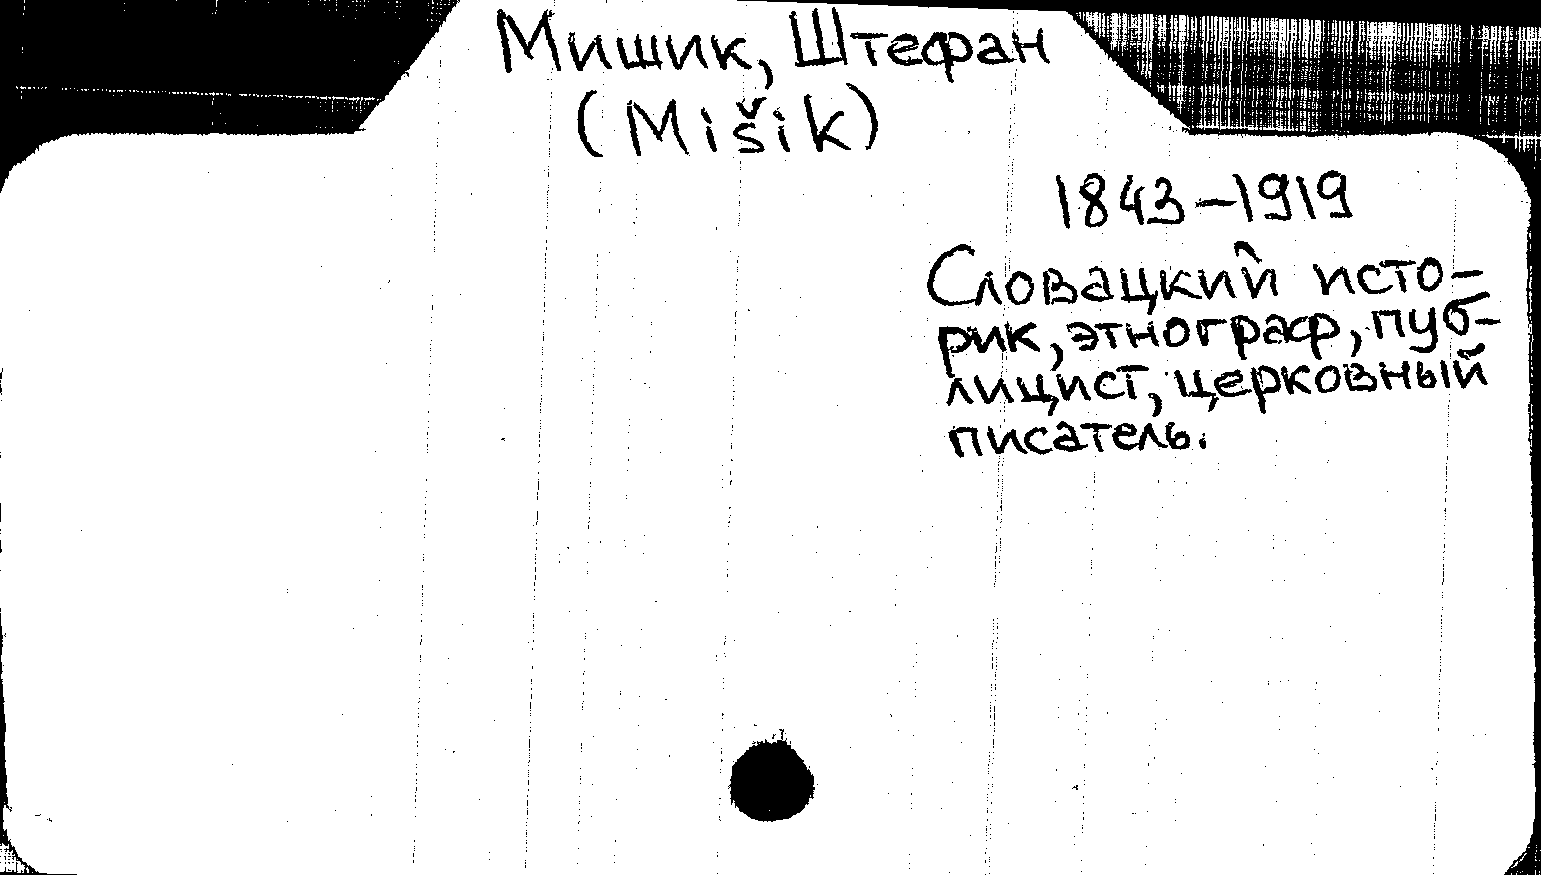 Мишик, Штефан
(Mišik)
1843–1919
Словацкий исто-
рик, этнограф, пуб-
лицист, церковный
писатель.